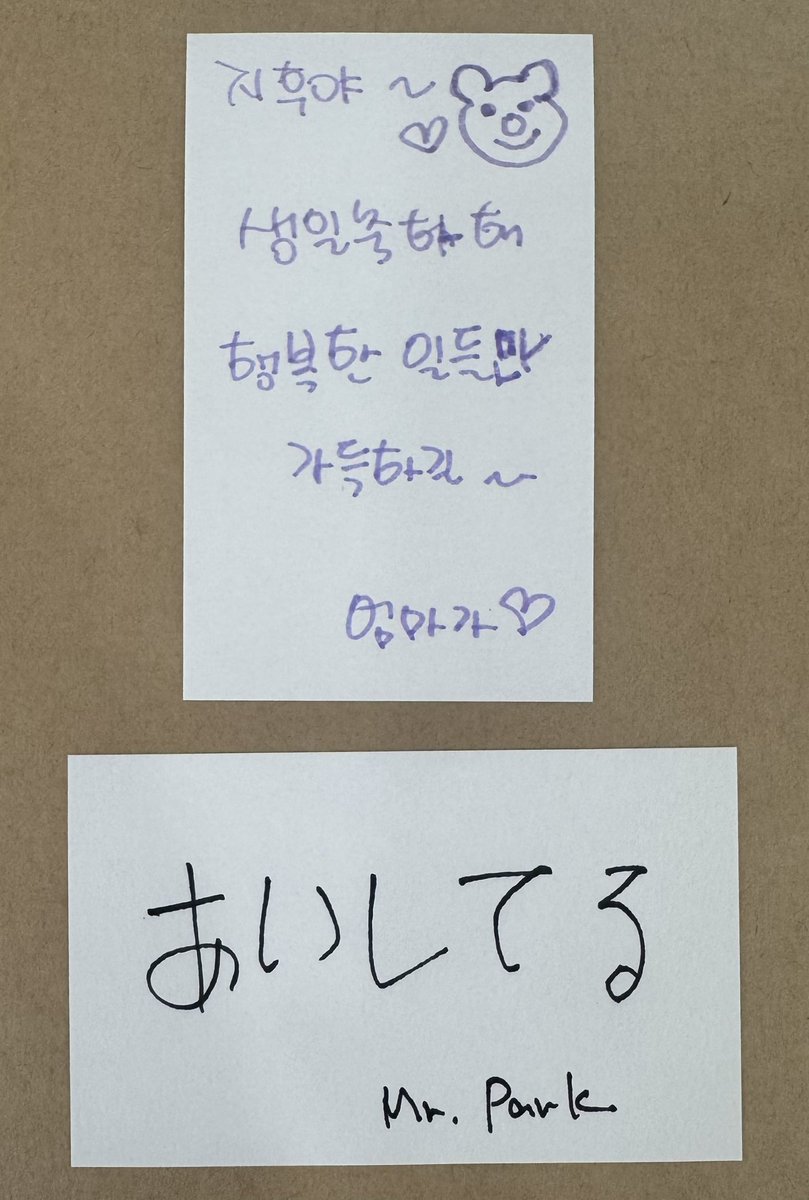 지후야 ~
♡
생일축하해
행복한 일들만
가득하길 ~
엄마가♡
あいしてる
Mr. Park